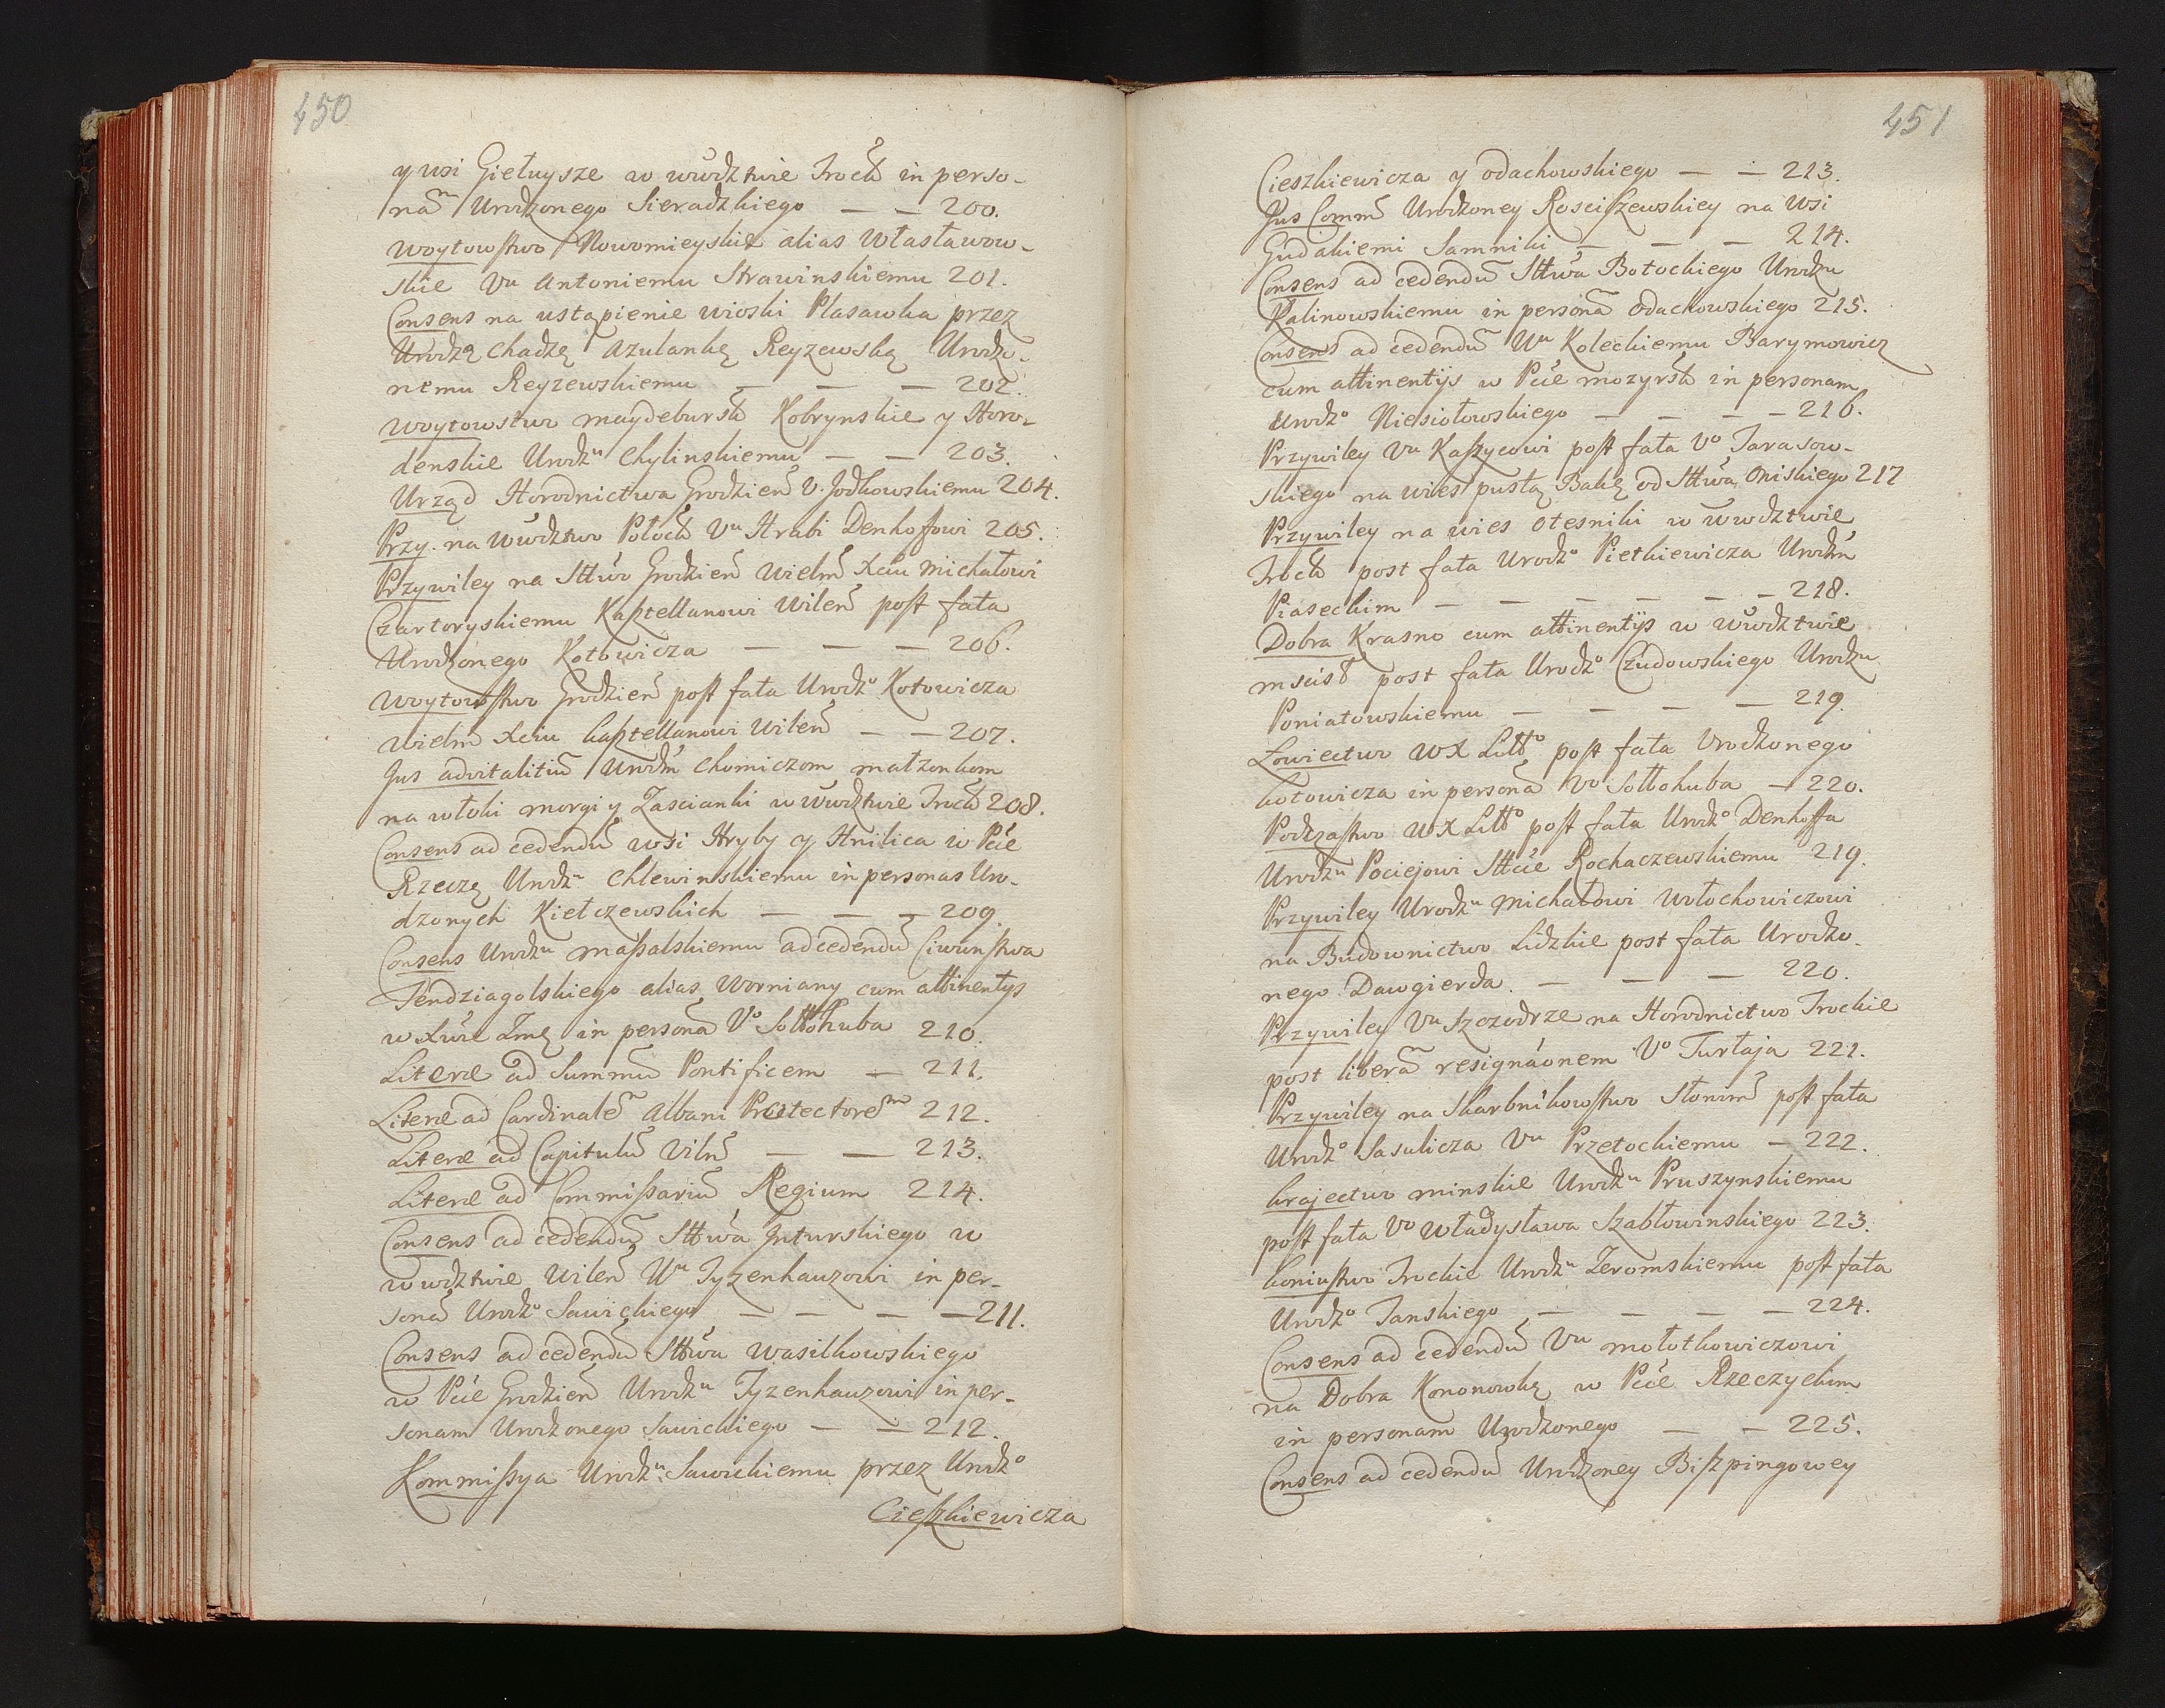 450
y wsi Giełuysze w wwdztwie Trock in perso-
nam Urodzonego Sieradzkiego — — 200.
Woytowstwo Nowomieyskie alias Własławow-
skie Vu Antoniemu Strawinskiemu 201.
Consens na ustąpienie wioski Plasawka przez
Urodzą Chadzę Azulankę Reyzewską Urodzo-
nemu Reyzewskiemu — — — 202.
Woytowstwo maydebursk Kobrynskie y Horo-
denskie Urodzu Chylinskiemu — — 203.
Urząd Horodnictwa Grodzień V. Jodkowskiemu 204.
Przy. na Wwdztwo Połock Vu Hrabi Denhoffowi 205.
Przywiley na Sttwo Grodzień Wielm Xciu Michałowi
Czartoryskiemu Kasztellanowi Wileń post fata
Urodzonego Kotowicza — — — 206.
Woytowstwo Grodzień post fata Urodzo Kotowicza
Wielm Xciu kasztellanowi Wileń — — 207.
Jus advitalitiu Urodzm Chomiczom małzonkom
na włoki morgi y Zascianki w Wwdztwie Trock 208.
Consens ad cedendu wsi Hryby y Hnilica w Pcie
Rzeczę Urodzu Chlewinskiemu in personas Uro-
dzonych Kiełczewskich — — — 209.
Consens Urodzu Massalskiemu ad cedendu Ciwunstwa
Tendziagolskiego alias Worniany cum attinentys
w Xwie Zmę in persona Vo Sołłohuba 210.
Literæ ad Summu Pontificem — 211.
Literæ ad Cardinalem Albani Protectorem 212.
Literæ ad Capitulu Viln — — 213.
Literæ ad Commissariu Regium 214.
Consens ad cedendu Sttwa Inturskiego w
wwdztwie Wileń Wu Tyzenhauzowi in per-
sona Urodzo Sawickiego — — — — 211.
Consens ad cedendu Sttwa Wasilkowskiego
w Pcie Grodzień Urodzu Tyzenhauzowi in per-
sonam Urodzonego Sawickiego — — 212.
Kommissya Urodzu Sawickiemu przez Urodzo
Cieszkiewicza
451
Cieszkiewicza y Odachowskiego — — 213.
Jus Comm Urodzoney Rosciszewskiey na Wsi
Gudakiemi Samniki — — — 214.
Consens ad cedendu Sttwa Botockiego Urodzu
Kalinowskiemu in persona Odachowskiego 215.
Consens ad cedendu Wu Koleckiemu Barymowicz
cum attinentijs w Pcie mozyrsk in personam
Urodzo Niesiołowskiego — — — — 216.
Przywiley Vu Kaszycowi post fata Vo Tarasow-
skiego na wies pustą Bakę od Sttwa Oniskiego 217
Przywiley na wies Otesniki w Wwdztwie
Trock post fata Urodzo Pietkiewicza Urodzm
Piaseckim — — — — — — 218.
Dobra Krasno cum attinentijs w wwdztwie
mscisł post fata Urodzo Czudowskiego Urodzu
Poniatowskiemu — — — — 219.
Łowiectwo WX Litto post fata Urodzonego
kotowicza in persona Vo Sołłohuba — 220.
Podczastwo WX Litto post fata Urodzo Denhoffa
Urodzu Pociejowi Sttcie Rochaczewskiemu 219.
Przywiley Urodzu Michałowi Wołochowiczowi
na Budownictwo Lidzkie post fata Urodzo-
nego Dawgierda. — — — 220.
Przywiley Vu Szczodrze na Horodnictwo Trockie
post libera resignaonem Vo Turłaja 221.
Przywiley na Skarbnikowstwo Słonim post fata
Urodzo Sasulicza Vu Przetockiemu — 222.
krajectwo minskie Urodzu Pruszynskiemu
post fata Vo Władysława Szabłowinskiego 223.
koniustwo Trockie Urodzu Zeromskiemu post fata
Urodzo Janskiego — — — — 224.
Consens ad cedendu Vu mołotkowiczowi
na Dobra Kononowkę w Pcie Rzeczyckim
in personam Urodzonego — — 225.
Consens ad cedendu Urodzoney Biszpingowey